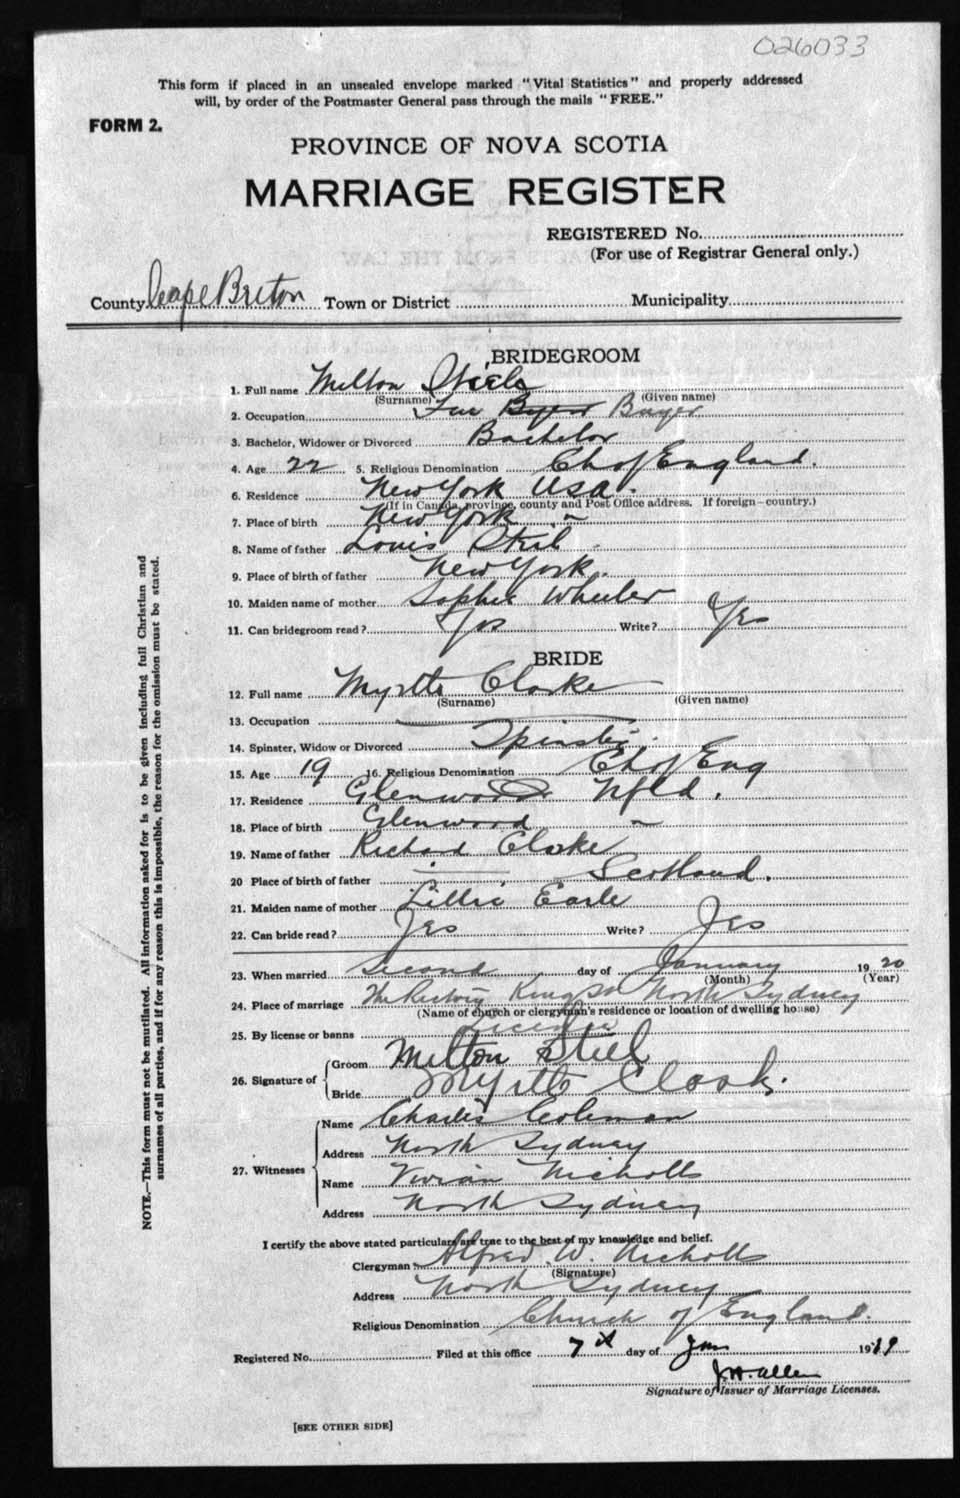 026033
This form if placed in an unsealed envelope marked "Vital Statistics" and properly addressed
will, by order of the Postmaster General pass through the mails "FREE."
FORM 2.
PROVINCE OF NOVA SCOTIA
MARRIAGE REGISTER
REGISTERED No.
(For use of Registrar General only.)
County Cape Breton Town or District Municipality
BRIDEGROOM
1. Full name Milton Steele
(Surname) (Given name)
2. Occupation Fur Byer Buyer
3. Bachelor, Widower or Divorced Bachelor
4. Age 22 5. Religious Denomination Ch of England.
6. Residence New York USA.
(If in Canada, province, county and Post Office address. If foreign—country.)
7. Place of birth New York "
8. Name of father Louis
9. Place of birth of father New York.
10. Maiden name of mother Sophie Wheeler
11. Can bridegroom read? Yes Write? Yes
BRIDE
12. Full name Myrtle Clarke
(Surname) (Given name)
13. Occupation
14. Spinster, Widow or Divorced Spinster.
15. Age 19 16. Religious Denomination Ch of Eng
17. Residence Glenwood Nfld.
18. Place of birth Glenwood "
19. Name of father Richard Clarke
20 Place of birth of father Scotland.
21. Maiden name of mother Lillie Earle
22. Can bride read? Yes Write? Yes
23. When married Second day of January 1920
(Month) (Year)
24. Place of marriage The Rectory King St North Sydney
(Name of church or clergyman's residence or location of dwelling house)
25. By license or banns License
26. Signature of Groom Milton Steel
Bride Myrtle
27. Witnesses Name Charles Coleman
Address North Sydney
Name Vivian Nicholls
Address North Sydney
I certify the above stated particulars are true to the best of my knowledge and belief.
Clergyman Alfred W. Nicholls
(Signature)
Address North Sydney
Religious Denomination Church of England.
Registered No. Filed at this office 7th day of Jan 1919
J.H. Allen
Signature of Issuer of Marriage Licenses.
[SEE OTHER SIDE]
NOTE.—This form must not be mutilated. All information asked for is to be given including full Christian and
surnames of all parties, and if for any reason this is impossible, the reason for the omission must be stated.